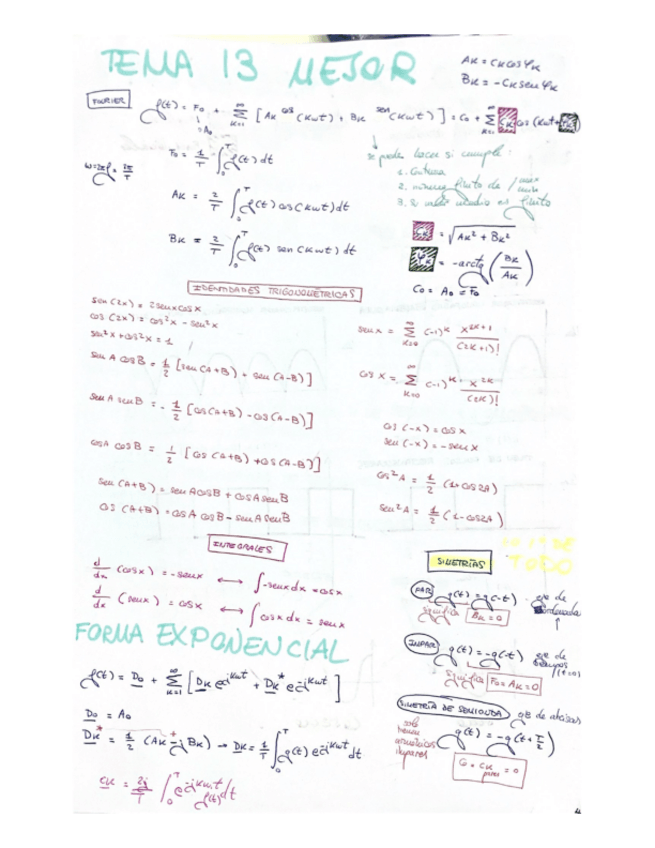 TEMA 13 MEJOR
AK = CK cos φK
BK = -CK sen φK
FOURIER
f(t) = F0 + ∞ Σ K=1 [AK cos (Kωt) + BK sen (Kωt)] = C0 + ∞ Σ K=1 CK cos (Kωt + φK)
= A0
ω = 2πf = 2π/T
F0 = 1/T ∫0T f(t) dt
AK = 2/T ∫0T f(t) cos(Kωt) dt
BK = 2/T ∫0T f(t) sen (Kωt) dt
se puede hacer si cumple:
1. Continua
2. número finito de / máx mín
3. valor medio es finito
CK = √AK² + BK²
φK = -arctg (BK/AK)
C0 = A0 = F0
IDENTIDADES TRIGONOMÉTRICAS
sen (2x) = 2senxcosx
cos (2x) = cos²x - sen²x
sen²x + cos²x = 1
sen A cosB = 1/2 [sen (A+B) + sen (A-B)]
sen A senB = - 1/2 [cos(A+B) - cos(A-B)]
cosA cosB = 1/2 [cos (A+B) + cos (A-B)]
sen (A+B) = senAcosB + cosAsenB
cos (A+B) = cosA cosB - senA senB
senx = ∞ Σ K=0 (-1)^K x^2K+1/(2K+1)!
cos x = ∞ Σ K=0 (-1)^K x^2K/(2K)!
cos (-x) = cosx
sen (-x) = -senx
cos²A = 1/2 (1+cos2A)
sen²A = 1/2 (1-cos2A)
INTEGRALES
d/dx (cosx) = -senx ⟷ ∫-senxdx = cosx
d/dx (senx) = cosx ⟷ ∫cosxdx = senx
SIMETRÍAS
TODO
PAR
g(t) = g(-t) - eje de ordenadas
significa BK = 0
IMPAR
g(t) = -g(-t) eje de tiempos (t=0)
significa F0 = AK = 0
SIMETRÍA DE SEMIONDA eje de abcisas
solo
armónicos
impares
g(t) = -g(t+T/2)
CK pares = 0
FORMA EXPONENCIAL
f(t) = D0 + ∞ Σ K=1 [DK e^jKωt + DK* e^-jKωt]
D0 = A0
DK* = 1/2 (AK + - jBK) → DK = 1/T ∫0T g(t) e^-jKωt dt
CK = 2j/T ∫0T e^-jKωt f(t) dt
4